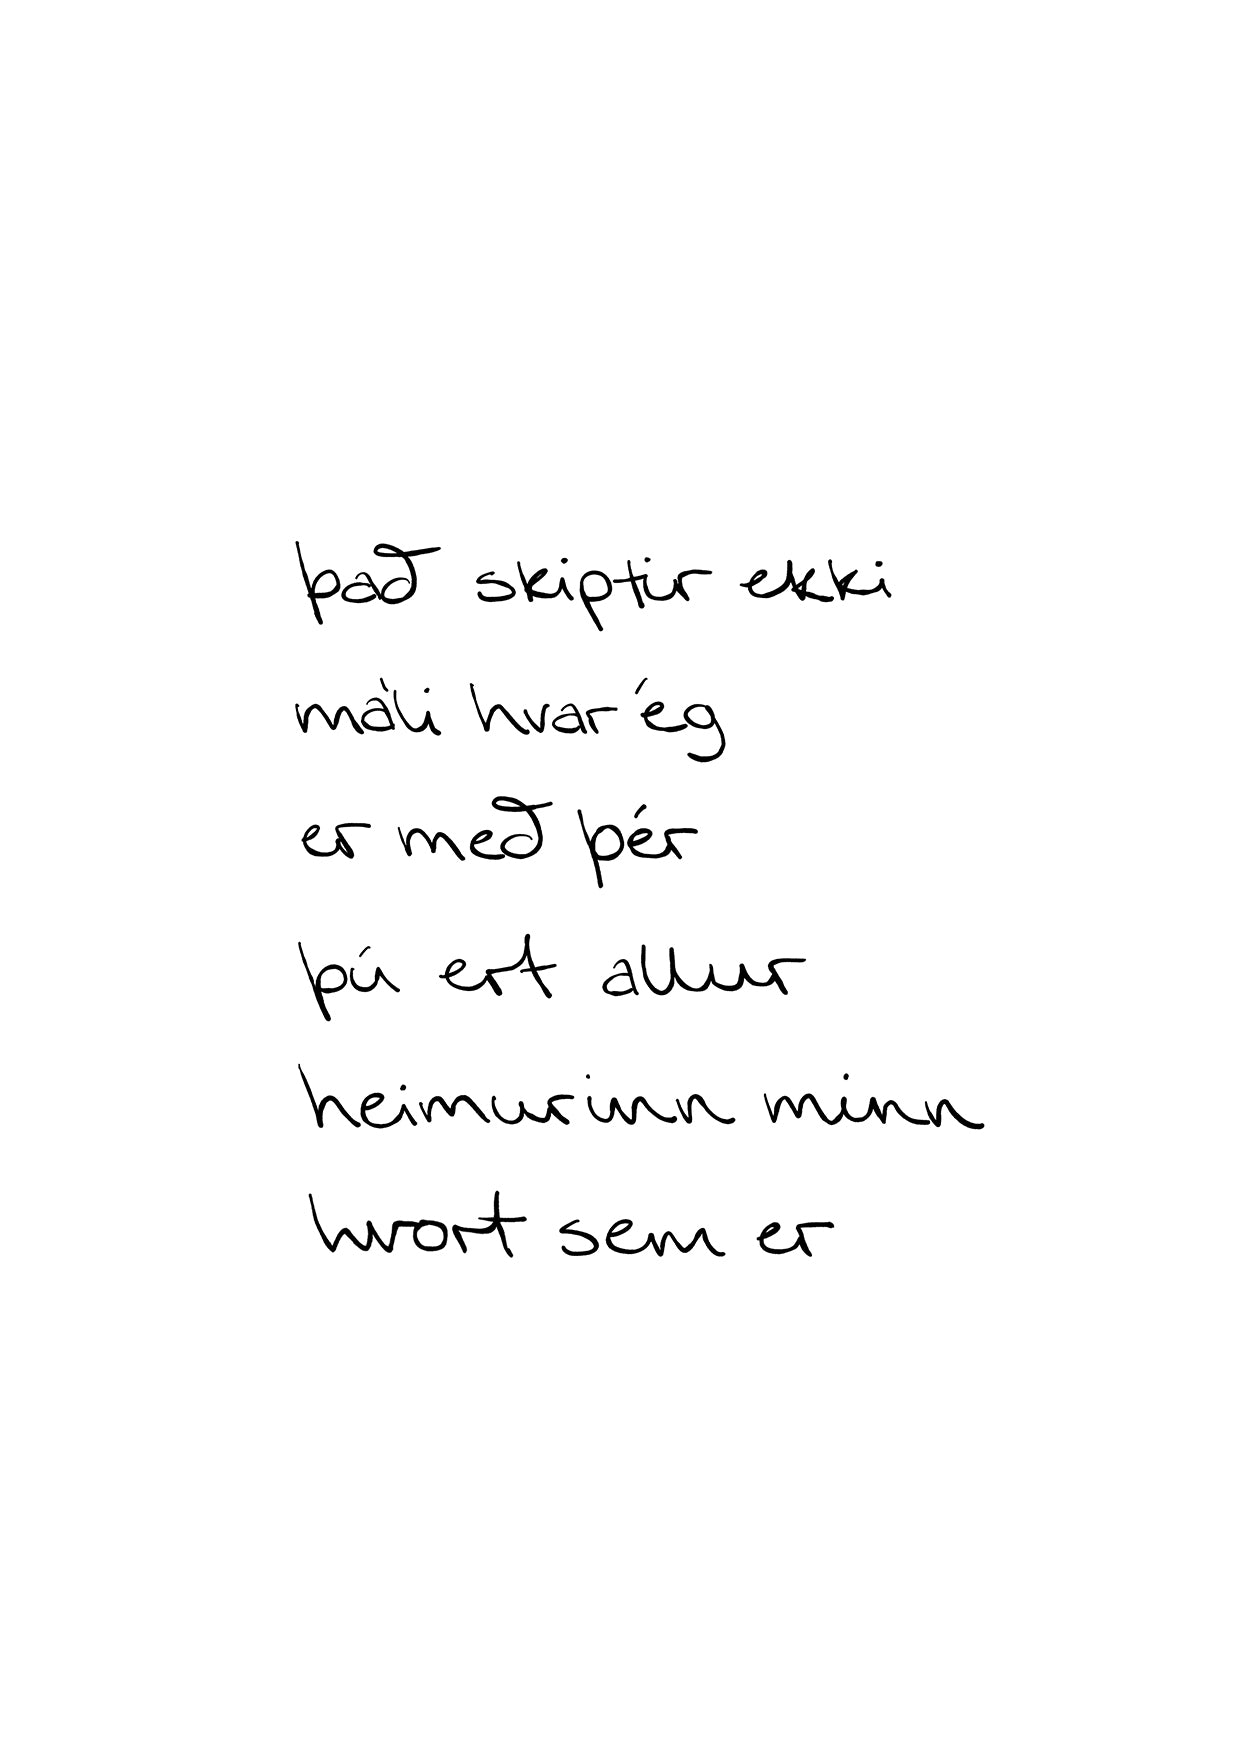 það skiptir ekki
máli hvar ég
er með þér
þú ert allur
heimurinn minn
hvort sem er